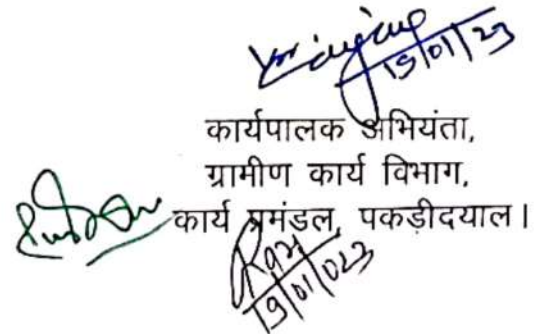 19/01/23
कार्यपालक अभियंता,
ग्रामीण कार्य विभाग,
कार्य प्रमंडल, पकड़ीदयाल।
19/01/023